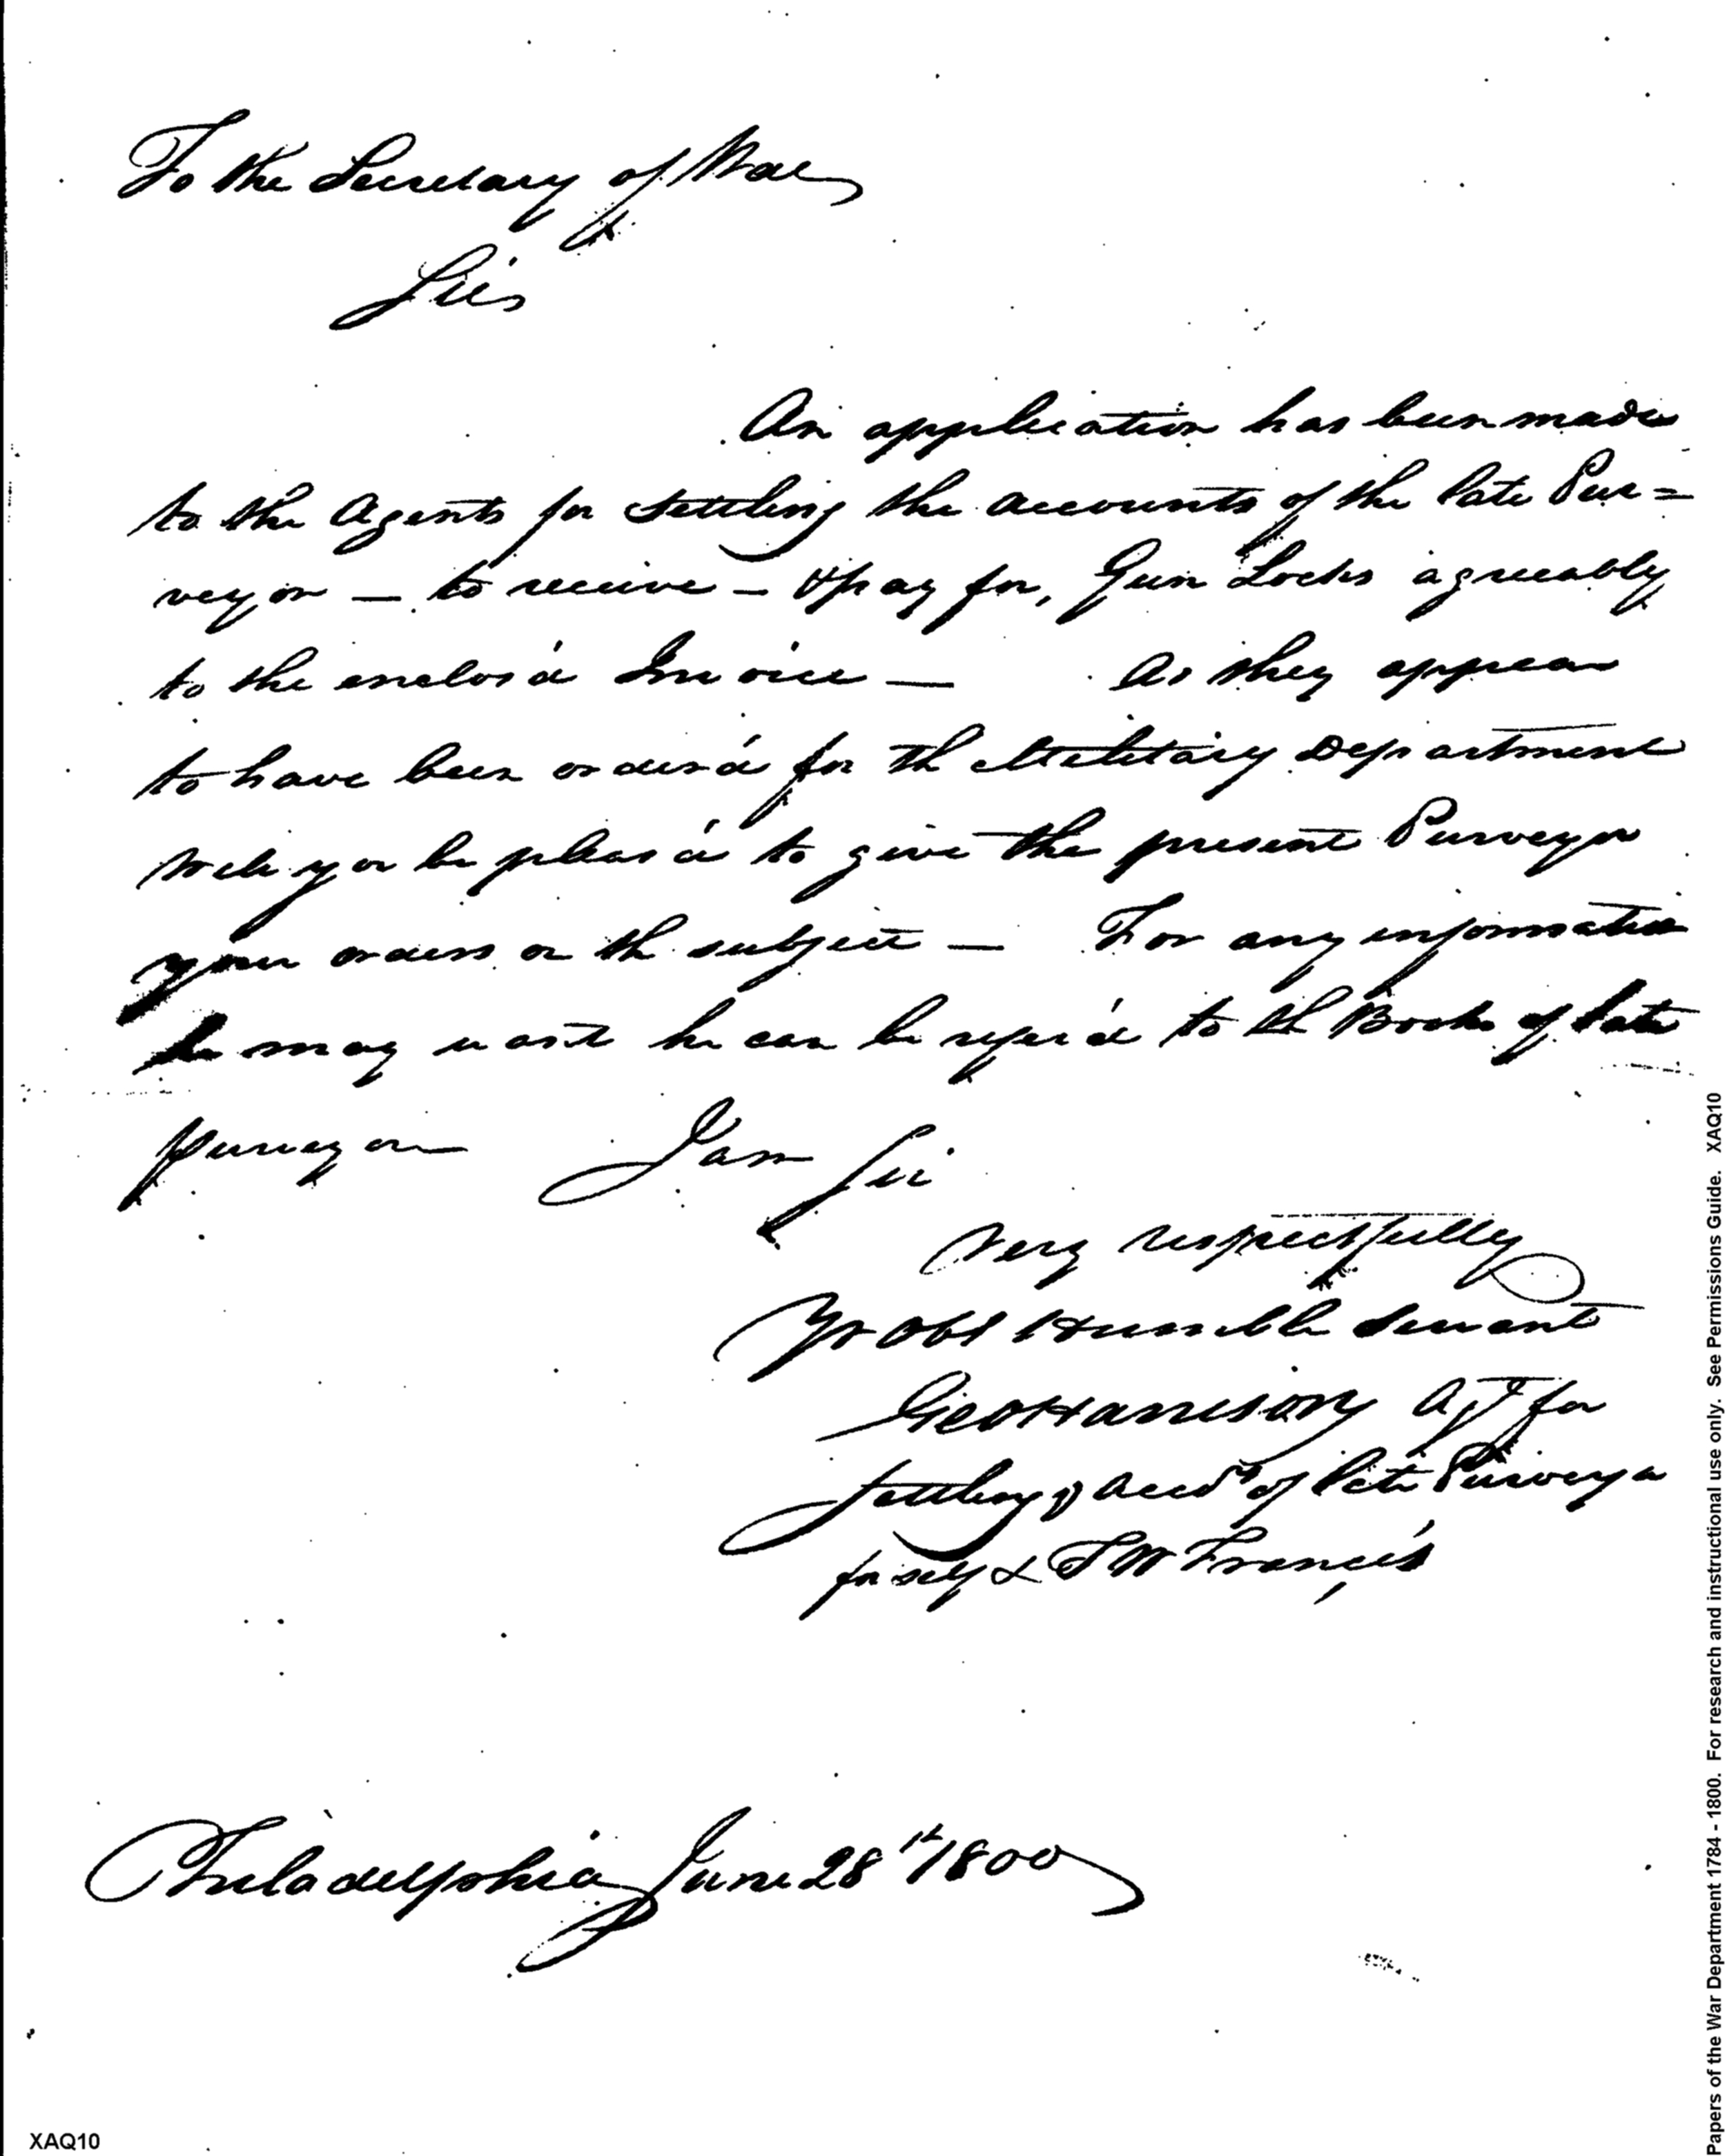 To the Secretary of War
Sir
An application has been made
to the Agents for settling the accounts of the late Pur=
veyor — to receive — & pay for, Gun Locks agreeably
to the enclos'd Invoice — As they appear
to have been order'd for th Military Department
will you be pleas'd to give the present Purveyor
your orders on th subject — For any information
he may want he can be refer'd to th Books of late
purveyor I am Sir
very respectfully
Yr Obt Humble Servant
Geo Harrison Agt for
settling accts of late Purveyor
for self & T W Francis
Philadelphia June 28th 1800
XAQ10
Papers of the War Department 1784 - 1800. For research and instructional use only. See Permissions Guide. XAQ10